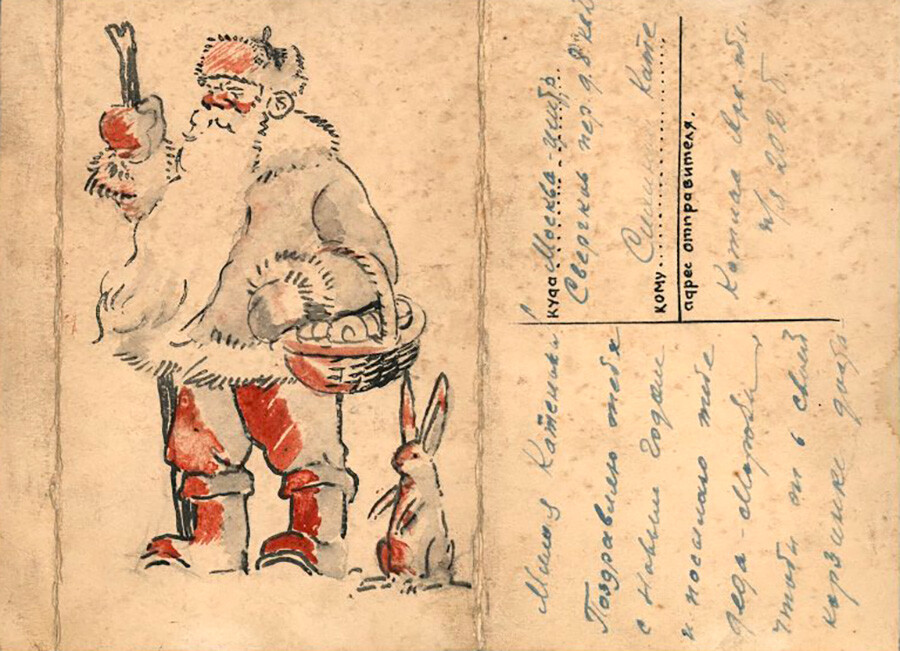 куда Москва-центр.
Сверчков пер. д. 8 кв
кому Кате
адрес отправителя.
Котлас Арх. обл.
п/я 202
Милой Катеньки
Поздравляю тебя
с новым годом
и посылаю тебе
деда-Мороза
чтобы он в своей
корзинке